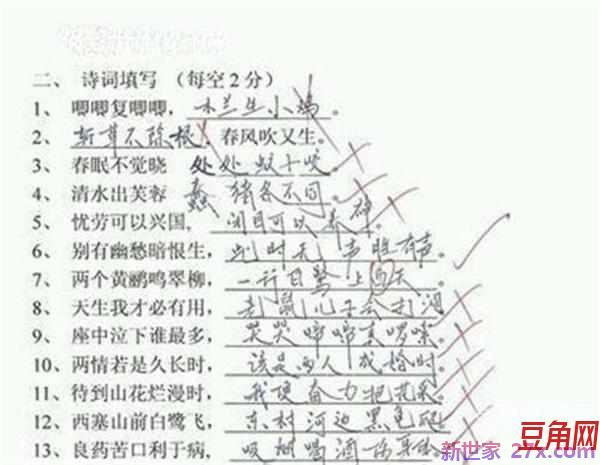 二、 诗词填写 （每空2分）
1、 唧唧复唧唧，木兰生小鸡。
2、斩草不除根，春风吹又生。
3、 春眠不觉晓 处处蚊子咬
4、 清水出芙蓉 蠢猪各不同。
5、 忧劳可以兴国，闭目可以养神。
6、 别有幽愁暗恨生，此时无声胜有声。
7、 两个黄鹂鸣翠柳，一行白鹭上西天。
8、 天生我才必有用，老鼠儿子会打洞
9、 座中泣下谁最多，哭哭啼啼真啰嗦。
10、两情若是久长时，该是两人成婚时。
11、待到山花烂漫时，我便奋力把花采。
12、西塞山前白鹭飞，东村河边黑龟爬。
13、良药苦口利于病，吸烟喝酒伤身体
豆角网
新世家 27x.com